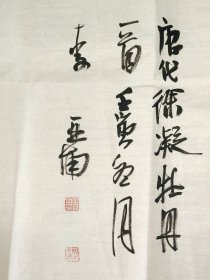 唐代徐凝牡丹
一首壬寅冬月
李亚南